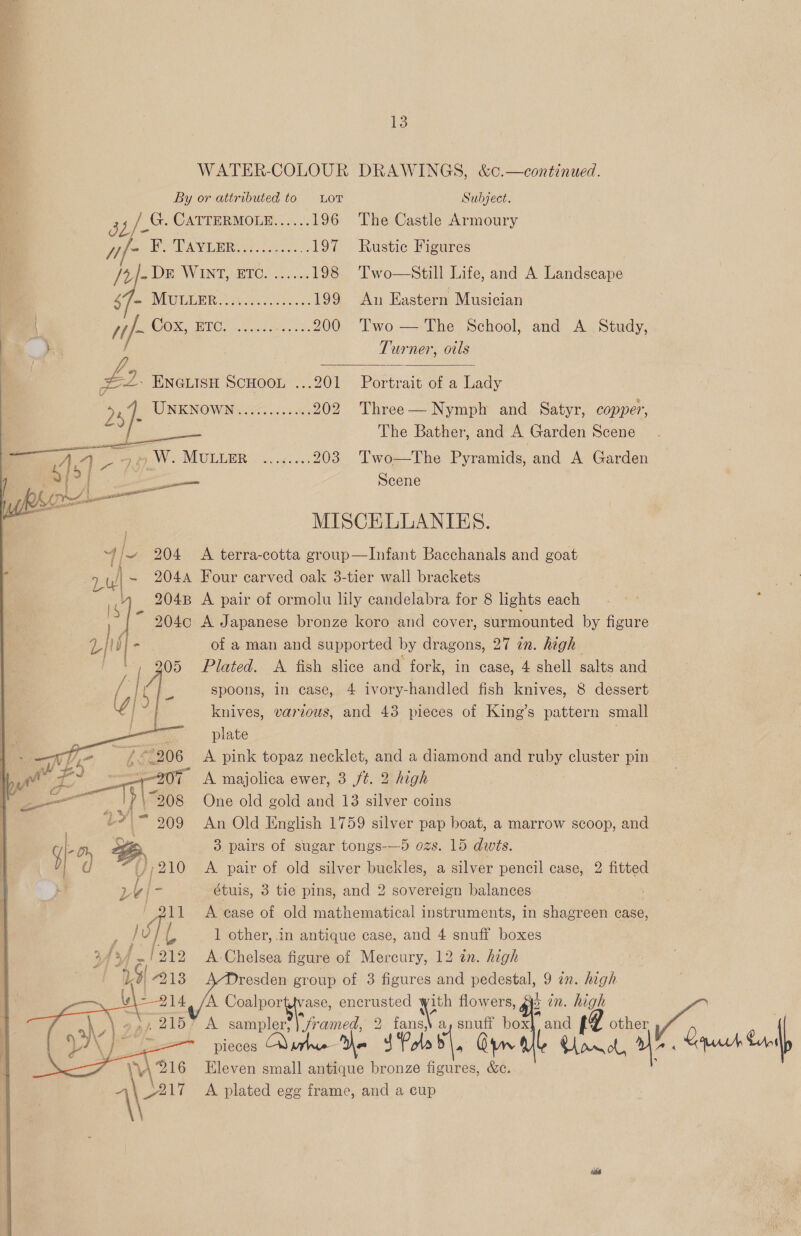 13
WATER-COLOUR DRAWINGS, &c.—continued.
By or attributed to LOT Subject.
G. CATTERMOLE......196 The Castle Armoury
F. TAYLER............197 Rustic Figures
DE WINT, ETC. ......198 Two—Still Life, and A Landscape
MULLER...............199 An Eastern Musician
COX, ETC. ............200 Two — The School, and A Study,
Turner, oils
ENGLISH SCHOOL ...201 Portrait of a Lady
UNKNOWN............202 Three — Nymph and Satyr, copper,
The Bather, and A Garden Scene
W. MULLER .........203 Two—The Pyramids, and A Garden
Scene
MISCELLANIES.
204 A terra-cotta group—Infant Bacchanals and goat
204A Four carved oak 3-tier wall brackets
204B A pair of ormolu lily candelabra for 8 lights each
204C A Japanese bronze koro and cover, surmounted by figure
of a man and supported by dragons, 27 in. high
205 Plated. A fish slice and fork, in case, 4 shell salts and
spoons, in case, 4 ivory-handled fish knives, 8 dessert
knives, various, and 43 pieces of King's pattern small
plate
206 A pink topaz necklet, and a diamond and ruby cluster pin
207 A majolica ewer, 3 ft. 2 high
208 One old gold and 13 silver coins
209 An Old English 1759 silver pap boat, a marrow scoop, and
3 pairs of sugar tongs—5 ozs. 15 dwts.
210 A pair of old silver buckles, a silver pencil case, 2 fitted
étuis, 3 tie pins, and 2 sovereign balances
211 A case of old mathematical instruments, in shagreen case,
1 other, in antique case, and 4 snuff boxes
212 A Chelsea figure of Mercury, 12 in. high
213 A Dresden group of 3 figures and pedestal, 9 in. high
214 A Coalport vase, encrusted with flowers, in. high
215 A sampler, framed, 2 fans, a snuff box, and other
pieces
216 Eleven small antique bronze figures, &c.
217 A plated egg frame, and a cup